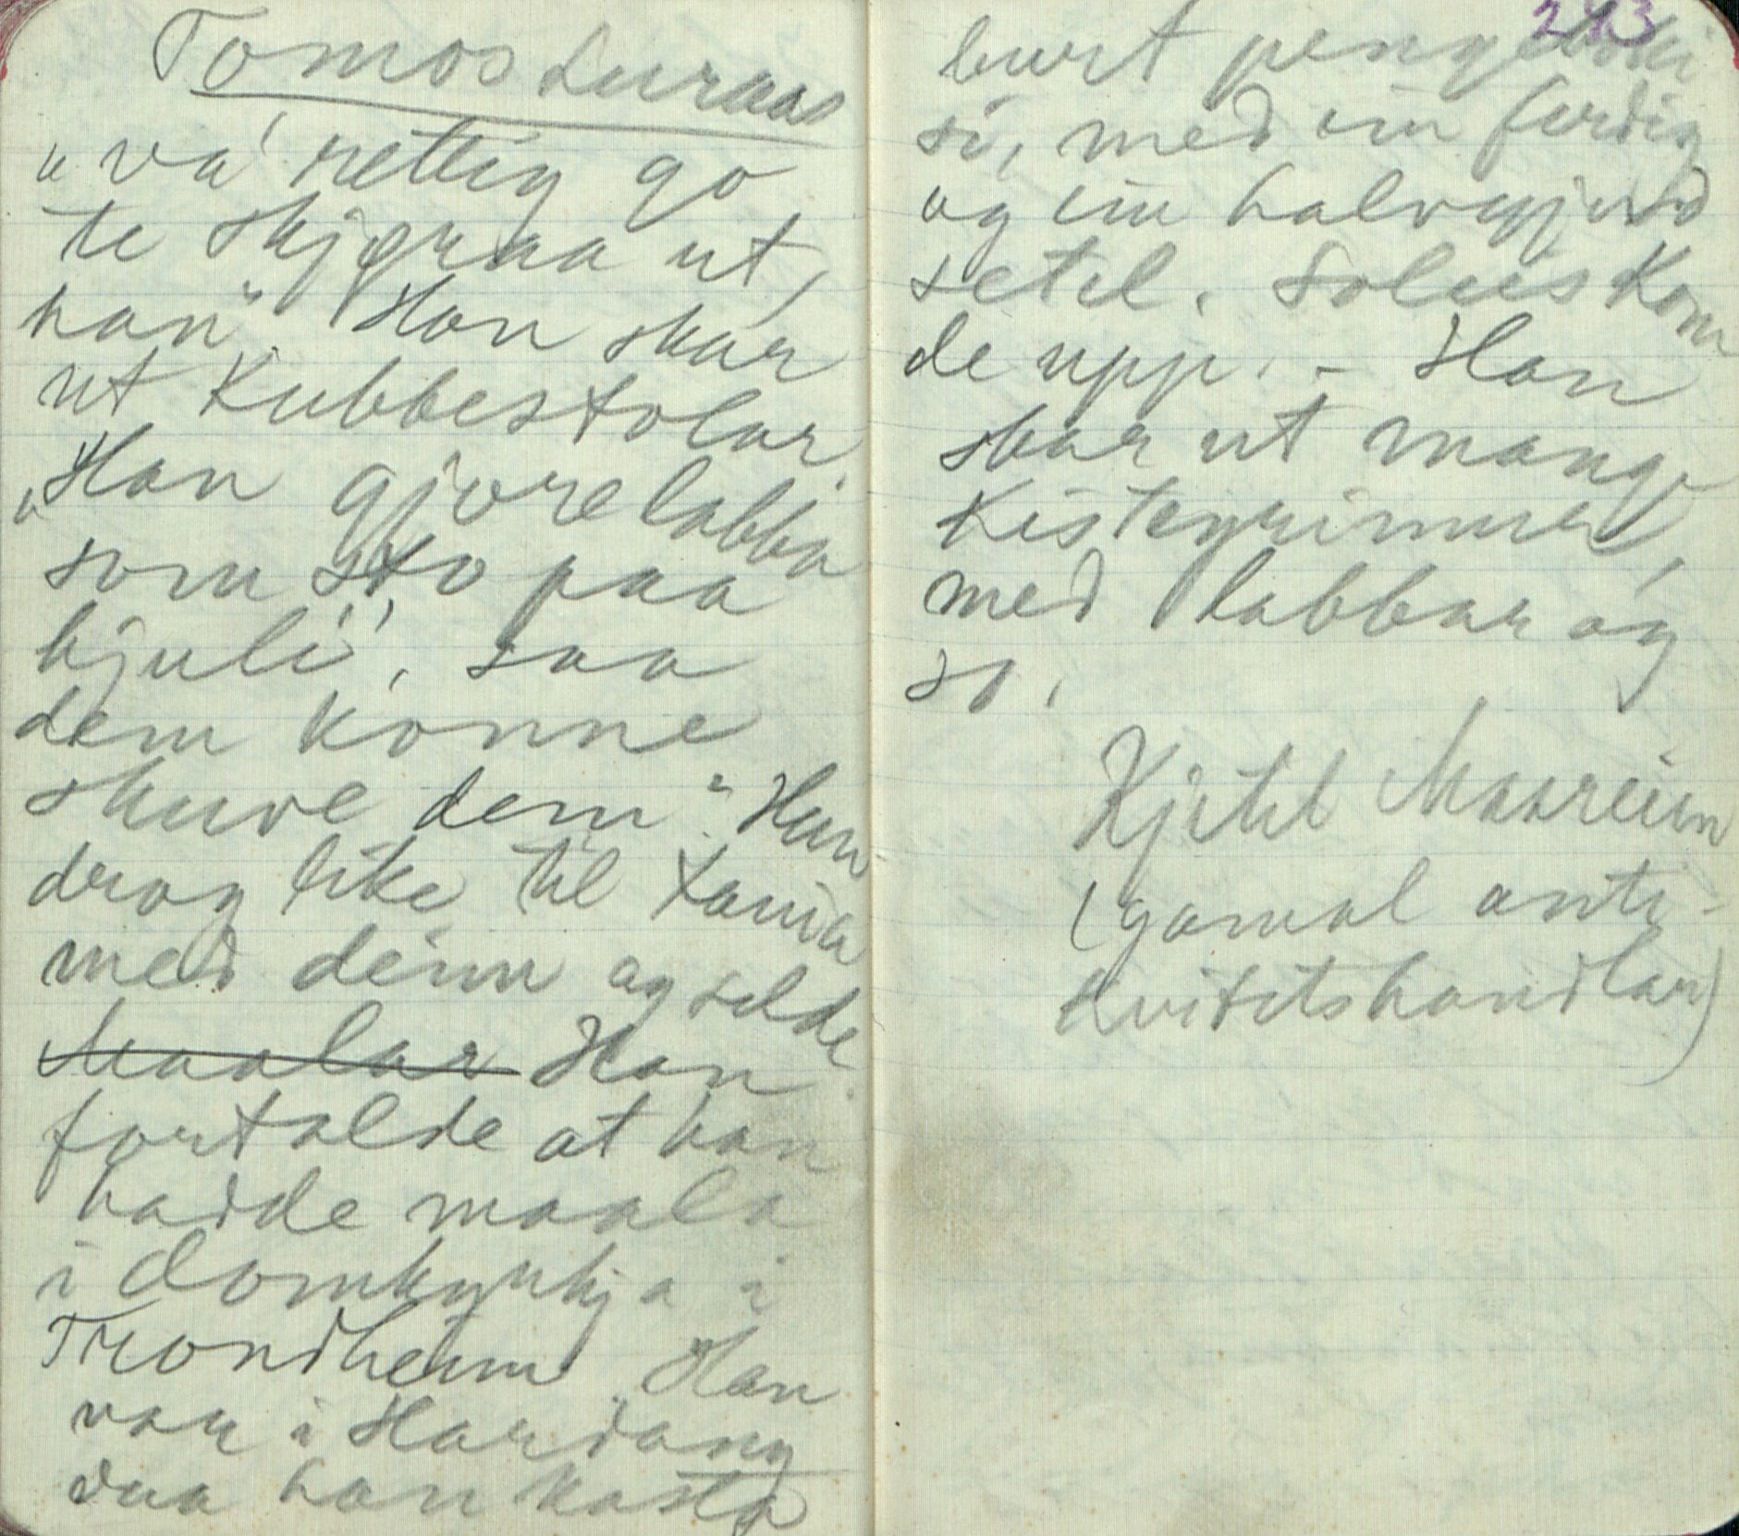 Tomos Luraas
"va' rettig go
te skjeraa ut,
han". Han skar
ut Kubbestolar.
"Han gjore labba
som sto paa
hjuli', saa
dem konne
skuve dem". Han
drog like til
med deim og selde
Maalar Han
fortalde at han
hadde maala
i domkyrkja i
Trondheim. Han
var i Hardang
daa han kasta
293
burt pengeboki
si, med ein ferdig
og ein halvgjord
setel. Soleis kom
de upp. - Han
skar ut mange
Kistegrimur,
med labbar og
so.
Kjetil Maareim
(gamal anti-
kvitetshandlar)